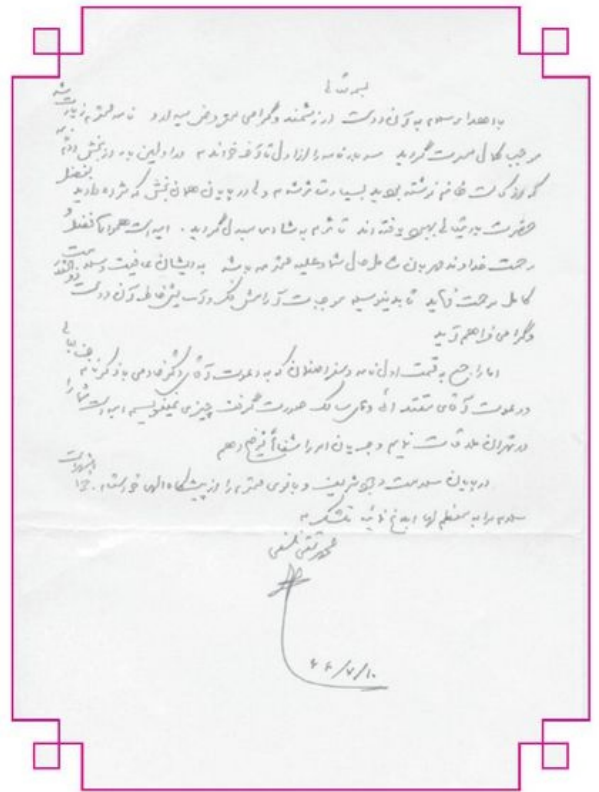 بسمه تعالی
با اهداء سلام به آن دوست ارزشمند و گرامی معروض میدارد نامه محترم زیارت شد
موجب کمال مسرت گردید نامه را از اول تا آخر خواندم در اولین بار در بخش دوم نامه
که از کسالت خانم نوشته بودید بسیار متأثر شدم ولی در پایان همان بخش که مژده دادید بفضل
حضرت باریتعالی بهبود یافته‌اند تأثرم به شادی مبدل گردید. امید است همواره تفضل و
رحمت خداوند مهربان شامل حال شما و علیه محترمه باشد به ایشان عافیت و سلامت
کامل مرحمت فرماید تا بدینوسیله موجبات آرامش فکر و آسایش خاطر آن دوست
و گرامی فراهم آید
اما راجع به قسمت اول نامه و سفر اصفهان که به دعوت آقای دکتر خادمی با ذکر نام جنابعالی
در دعوت آقای معتمد و آقای سالک صورت گرفت چیزی نمینویسم امید است شما را
در تهران ملاقات نمایم و جریان امر را شفاهاً توضیح دهم
در پایان سلامت وجود شریف و بانوی محترمه را از پیشگاه الهی خواستارم.
سلام مرا به معظم لها ابلاغ فرمائید متشکرم
محمد تقی فلسفی
۶۶/۷/۱۰